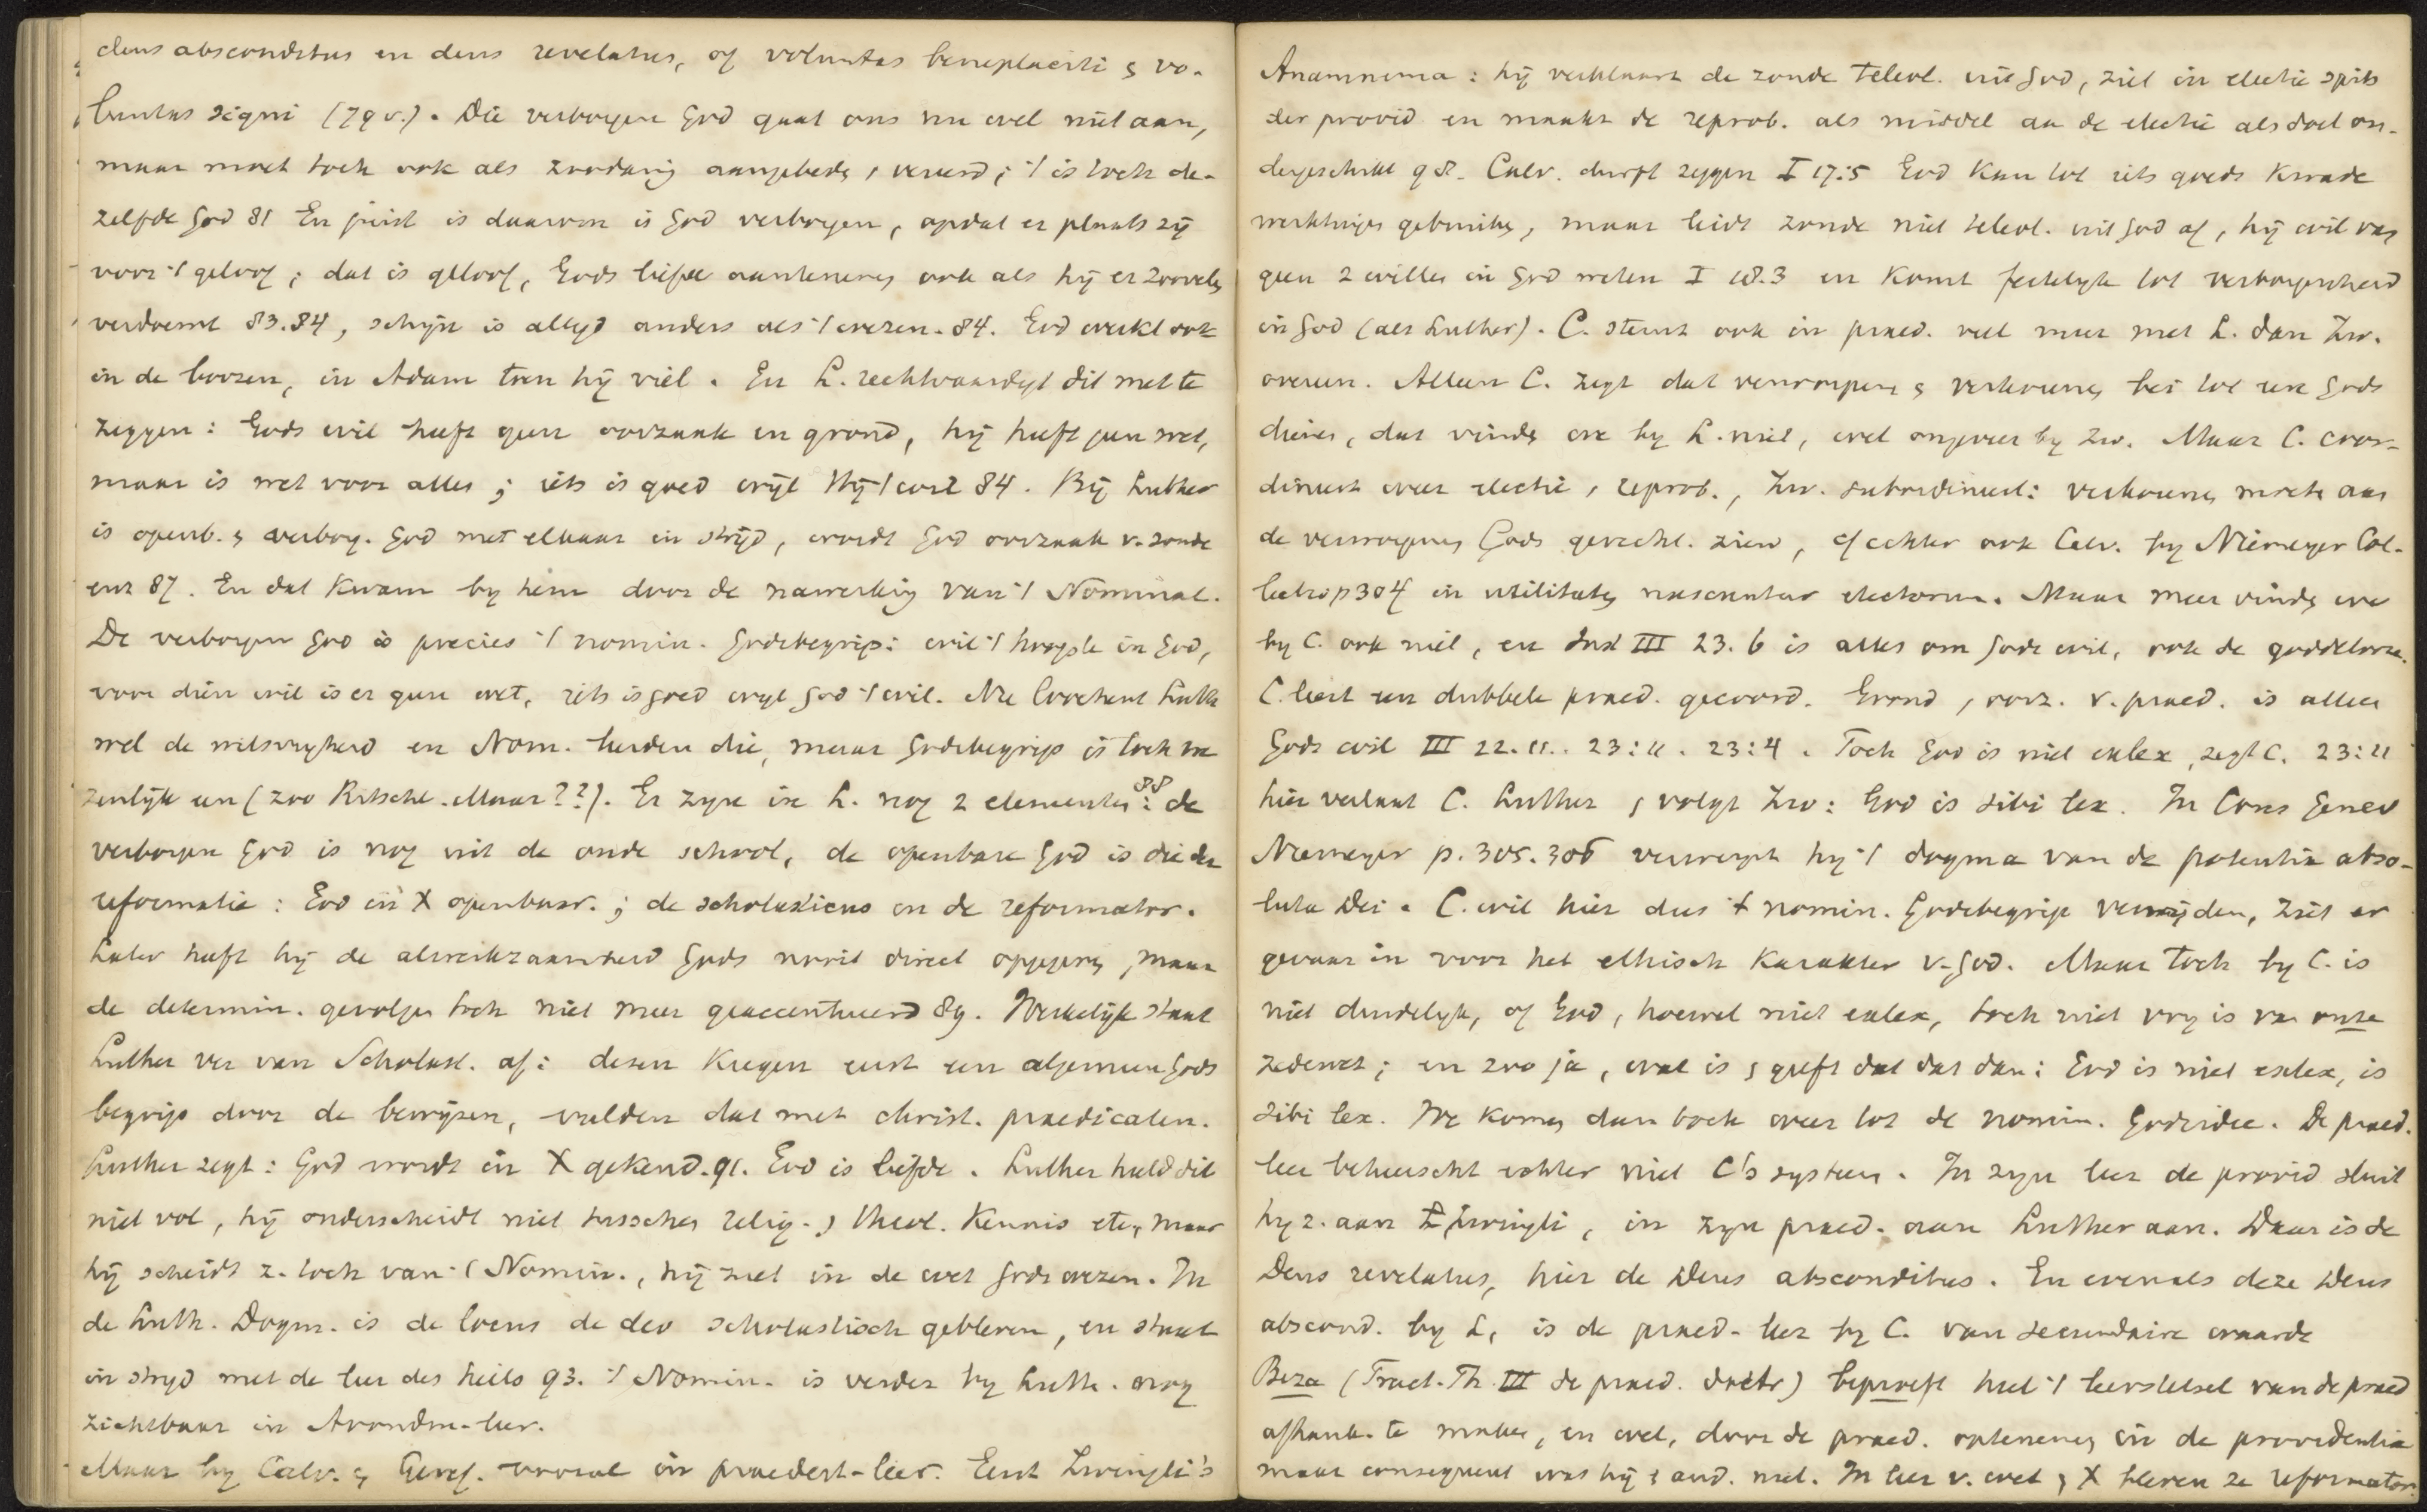 deus absconditus en deus revelatus, of voluntas beneplaciti & vo-
luntas signi (79 v.). Die verborgen God gaat ons nu wel niet aan,
maar moet toch ook als zoodanig aangebeden, vereerd; 't is toch de-
zelfde God 81 En juist is daarom is God verborgen, opdat er plaats zij
voor 't geloof; dat is geloof, Gods liefde aantenemen ook als hij er zoovelen
verdoemt 83.84, schijn is altyd anders als 't wezen. 84. God werkt ook
in de boozen, in Adam toen hij viel. En L. rechtvaardigt dit met te
zeggen: Gods wil heeft geen oorzaak en grond, hij heeft geen wet,
maar is wet voor alles; iets is goed wijl Hij 't wil 84. Bij Luther
is openb. & verborg. God met elkaar in strijd, wordt God oorzaak v. zonde
enz 87. En dat kwam by hem door de nawerking van 't Nominal.
De verborgen God is precies 't nomin. Godsbegrip: wil 't hoogste in God,
voor dien wil is er geen wet, iets is goed wyl God 't wil. Nu loochent Luther
wel de wilsvryheid en Nom. leerden die, maar Godsbegrip is toch we-
zenlijk een (zoo Ritschl. Maar??). Er zyn in L. nog 2 elementen 88: de
verborgen God is nog uit de oude school, de openbare God is die der
reformatie: God in X openbaar.; de scholasticus en de reformator.
Later heeft hij de alwerkzaamheid Gods nooit direct opgegeven, maar
de determin. gevolgen toch niet meer geaccentueerd 89. Werkelijk staat
Luther ver van Scholast. af: dezen kregen eerst een algemeen Gods
begrip door de bewijzen, vulden dat met christ. praedicaten.
Luther zegt: God wordt in X gekend. 91. God is liefde. Luther hield dit
niet vol, hij onderscheidt niet tusschen relig. & theol. kennis etc, maar
hij scheidt z. toch van 't Nomin., hij ziet in de wet Gods wezen. In
de Luth. Dogm. is de locus de deo scholastisch gebleven, en staat
in stryd met de leer des heils 93. 't Nomin. is verder by Luth. nog
zichtbaar in Avondm-leer.
Maar by Calv. & Geref. vooral in praedest-leer. Eerst Zwingli's
Anamnema: hij verklaart de zonde teleol. uit God, ziet in electie spits
der provid en maakt de reprob. als middel aan de electie als doel on-
dergeschikt 98. Calv. durft zeggen I 17:5 God kan tot iets goeds kwade
werktuigen gebruiken, maar leidt zonde niet teleol. uit God af, hij wil van
geen 2 willen in God weten I 18.3 en komt feitelyk tot verborgenheid
in God (als Luther). C. stemt ook in praed. veel meer met L. dan Zw.
overeen. Alleen C. zegt dat verwerping & verkiezing bei tot eere Gods
dienen, dat vinden we by L. niet, wel ongeveer by Zw. Maar C. coor-
dineert weer electie & reprob., Zw. subordineert: verkorenen moeten aan
de verworpenen Gods gerecht. zien, cf echter ook Calv. by Niemeyer Col-
lectio p 304 in utilitatem nascuntur electorum. Maar meer vinden we
by C. ook niet, en Inst III 23.6 is alles om Gods wil, ook de goddelooze.
C. leert een dubbele praed. gecoord. Grond & oorz. v. praed. is alleen
Gods wil III 22.11.. 23:11. 23:4. Toch God is niet exlex, zegt C. 23:11
hier verlaat C. Luther & volgt Zw: God is sibi lex. In Cons Genev
Niemeyer p. 305.306 verwerpt hij 't dogma van de potentia abso-
luta Dei. C. wil hier dus 't nomin. Godsbegrip vermijden, ziet er
gevaar in voor het ethisch karakter v. God. Maar toch by C. is
niet duidelyk, of God, hoewel niet exlex, toch niet vry is van onze
zedewet; en zoo ja, wat is & geeft dat dat dan: God is niet exlex, is
sibi lex. We komen dan toch weer tot de nomin. Godsidee. De praed.
leer beheerscht echter niet C's systeem. In zyn leer de provid sluit
hy z. aan Zwingli, in zyn praed. aan Luther aan. Daar is de
Deus revelatus, hier de Deus absconditus. En evenals deze Deus
abscond. by L, is de praed-leer by C. van secundaire waarde
Beza (Tract. Th. III de praed. doctr) beproeft heel 't leerstelsel van de praed
afhank. te maken, en wel, door de praed. optenemen in de providentia
maar consequent was hij & and. niet. In leer v. wet & X bleven ze reformator.